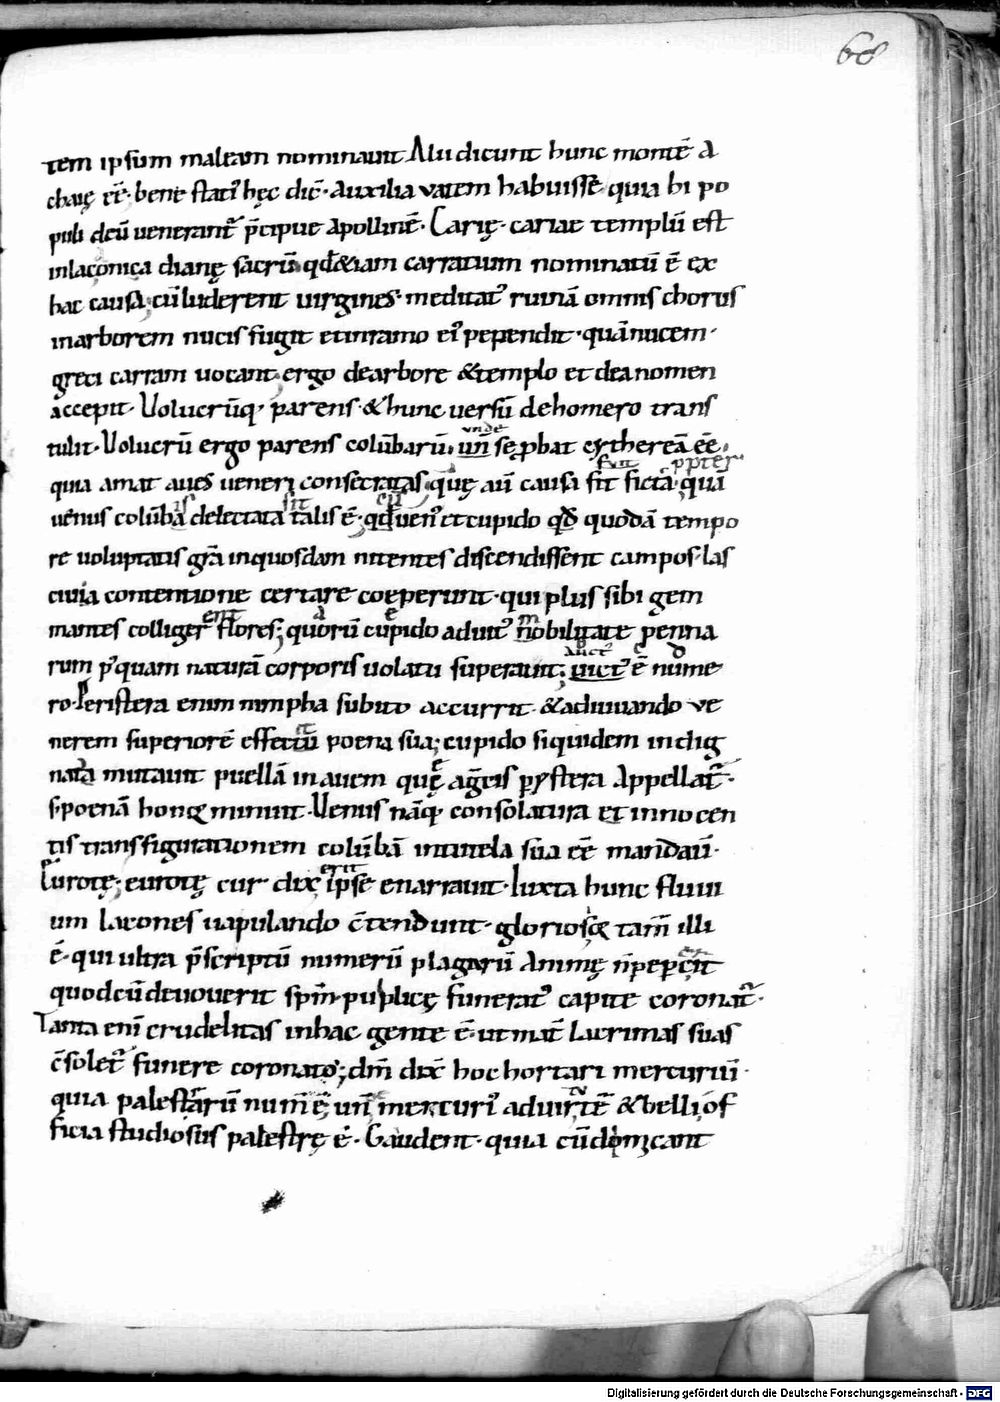 68
tem ipsum maleam nominauit Alii dicunt hunc montē A
chaię eē· bene stati᾽ hęc dic̄· Auxilia vatem habuissē quia hi po
puli deū uenerant᷑ p̄cipue Apollinē· Carię· cariae templū est
inlaconica dianę sacrū qđ &iam carratium nominatū ē ex
hac causa; cū luderent uirgines· meditat᾽ ruinā omnis chorus
inarborem nucis fugit etinramo ei᾽ pependit· quā nucem·
greci carram uocant; ergo dearbore &templo et dea nomen
accepit· Volucrūq· parens· & hunc uersū dehomero trans
tulit· Volucrū ergo parens colūbarū; un̄ se ꝓbat cythereā eē·
vnde
quia amat aues ueneri consecratas quę aū causa fit ficta quā
fuit ppter
uēnus colūbā delectata talis ē· qđ uen᾽ et cupido qđ quodā tempo
is sit cū
re uoluptatis grā inquosdam nitentes discendissent campos· las
ciuia contentione certare coeperunt· qui plus sibi gem
mantes colliger flores; quorū cupido adiut᾽ nobilitate penna
ent
rum p᾽quam naturā corporis uolatu superauit; uict᾽ ē nume
ro· Peristera enim nimpha subito accurrit· &adiuuando ve
nerem superiorē effectū poena sua; cupido siquidem indig
nata mutauit puellā in auem quę Agreis perystera Appellat᷑·
s; poenā honor minuit· Venus nāq consolatura et innocen
tis transfigurationem colūbā intutela sua eē mandauī·
Eurotę; eurotę cur dix̄ ipse enarrauit· Iuxta hunc fluui
erit
um lacones uapulando c̄tendunt· gloriosq tam̄ illi
ē· qui ultra p̄scriptū numerū plagarū Animę n̄ pepercit
quodcū deuouerit spm̄ puplicę funerat᾽ capite coronat᷑·
Tanta eni crudelitas inhac gente ē· ut mat᷑ lacrimas suas
c̄solet᷑ funere coronato; dm̄ dix̄ hoc hortari mercuriū·
quia palestrarū num̄ ę un̄ mercuri᾽ aduirtē &belli of
ficia studiosus palestrę ē· Gaudent· quia
Digitalisierung gefördert durch die Deutsche Forschungsgemeinschaft - DFG